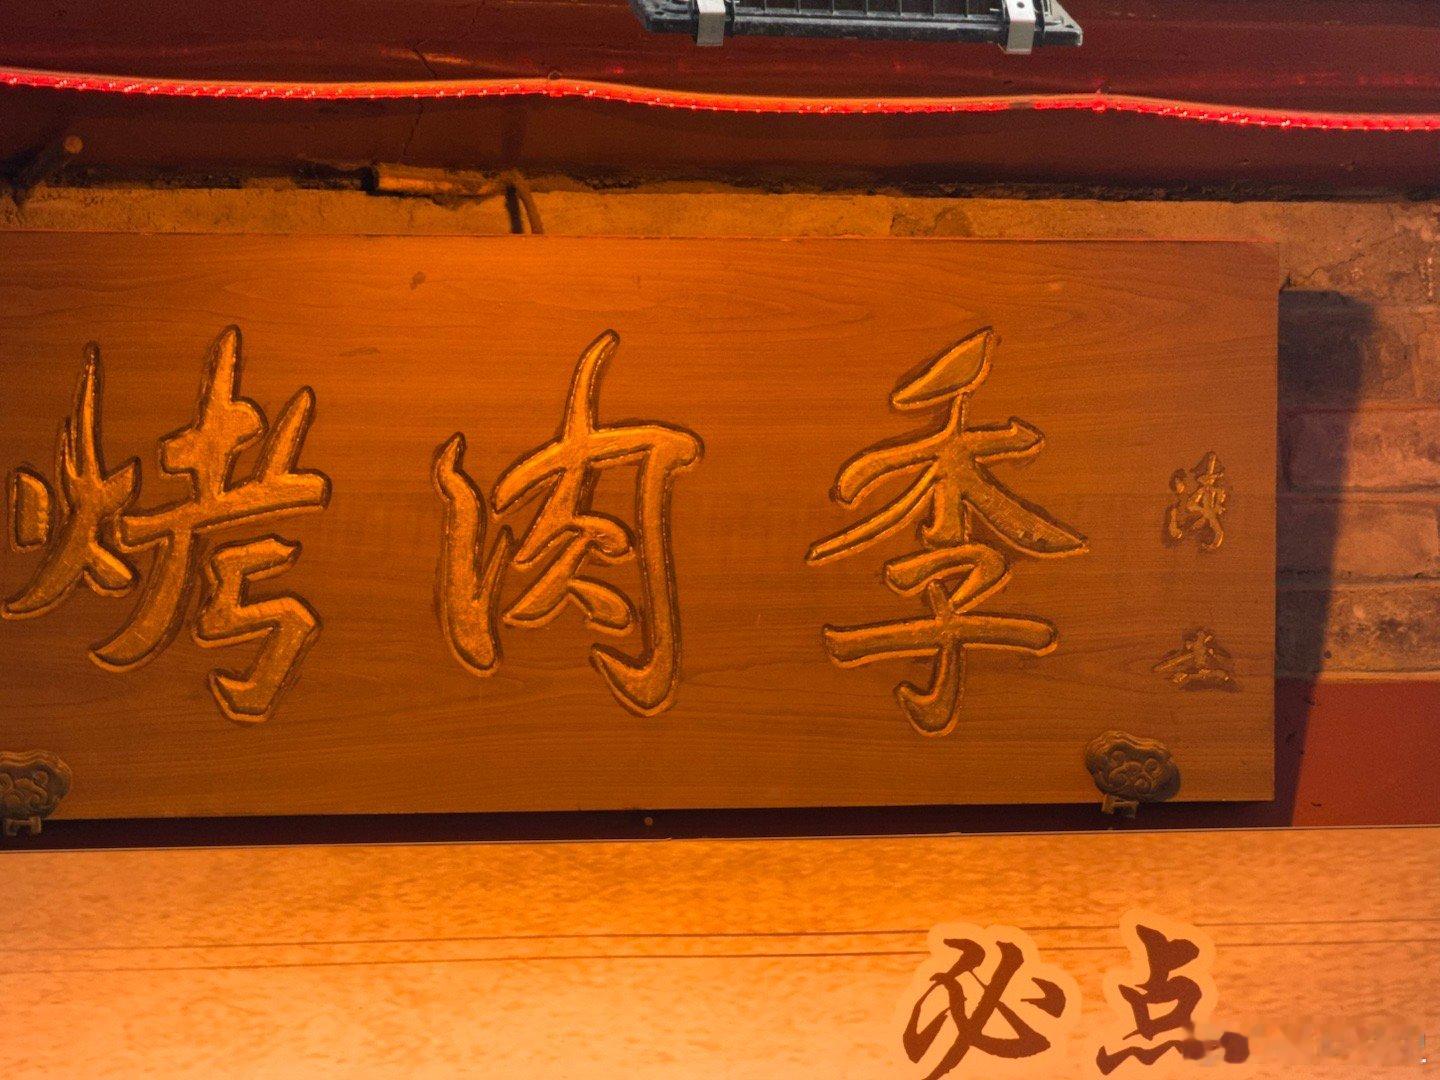 烤肉季
溥杰
必点